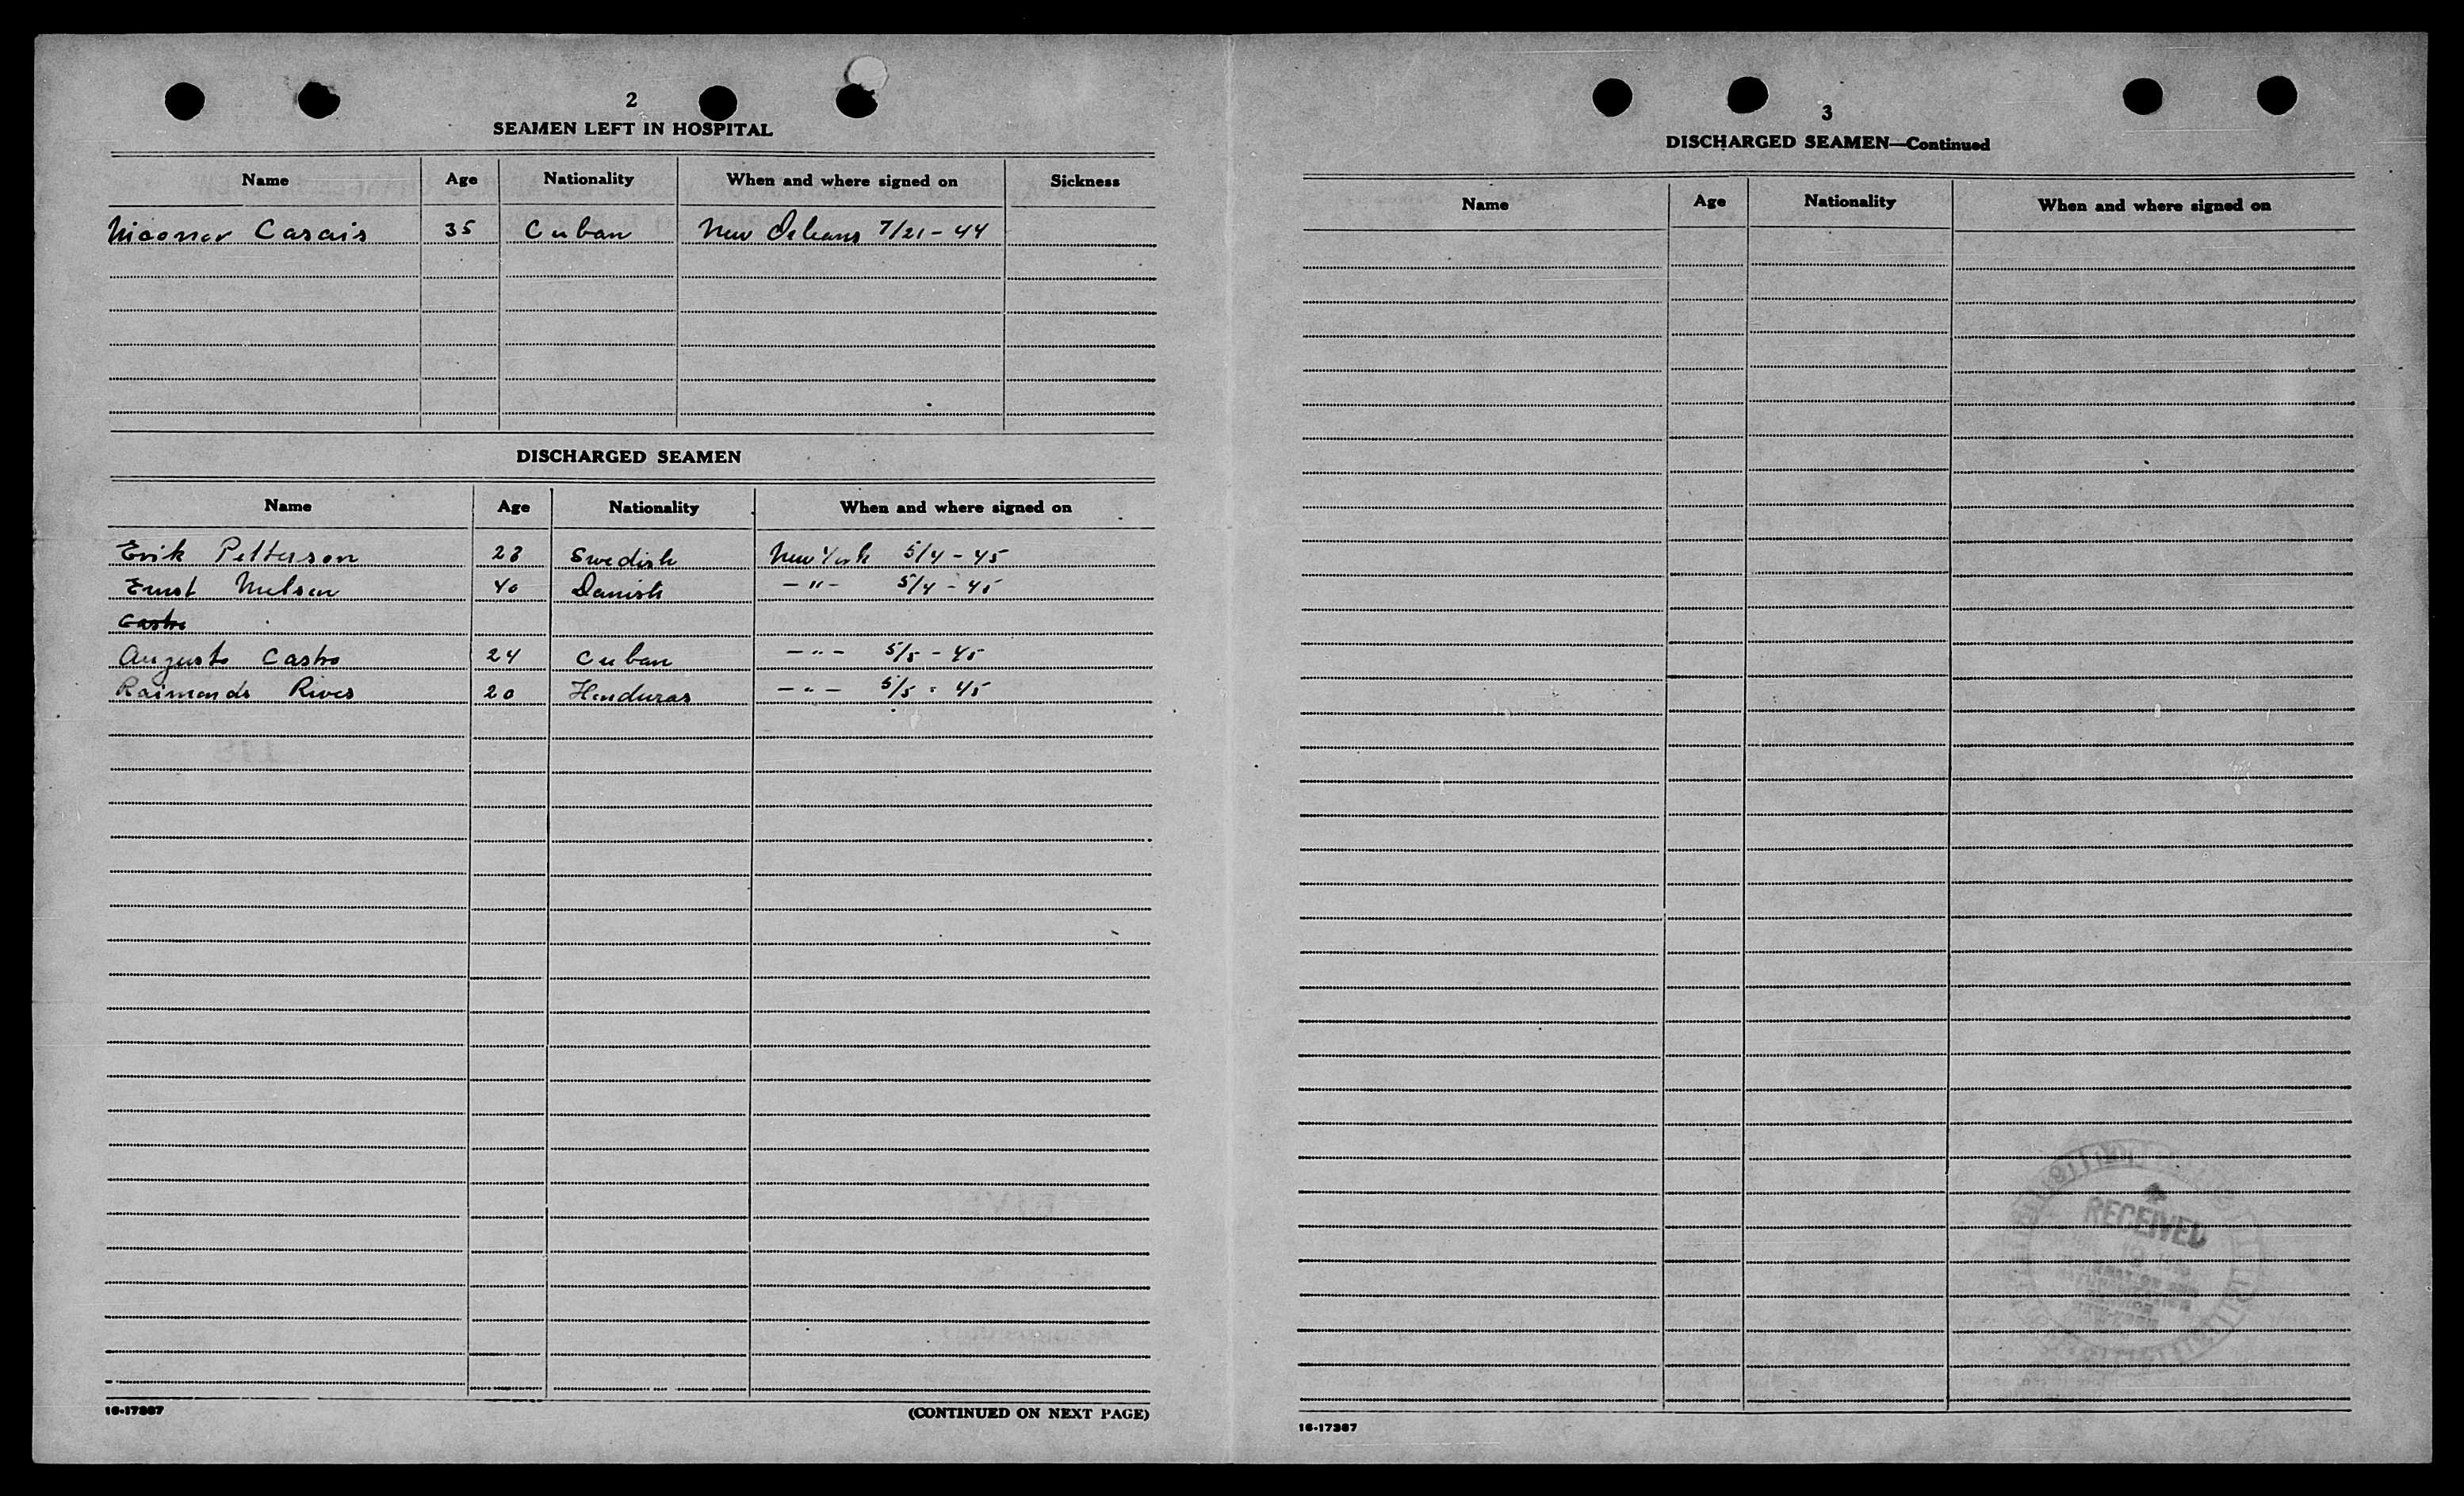 2
SEAMEN LEFT IN HOSPITAL
Name Age Nationality When and where signed on Sickness
Casais 35 Cuban New Orleans 7/21 - 44
DISCHARGED SEAMEN
Name Age Nationality When and where signed on
Erik Petterson 23 Swedish New York 5/4 - 45
Ernst Nielsen 40 Danish - " - 5/4 - 45
Castro
Augusto Castro 24 Cuban - " - 5/5 - 45
Raimondo Rives 20 Honduras - " - 5/5 - 45
16-17387
(CONTINUED ON NEXT PAGE)
3
DISCHARGED SEAMEN—Continued
Name Age Nationality When and where signed on
RECEIVED
16-17387